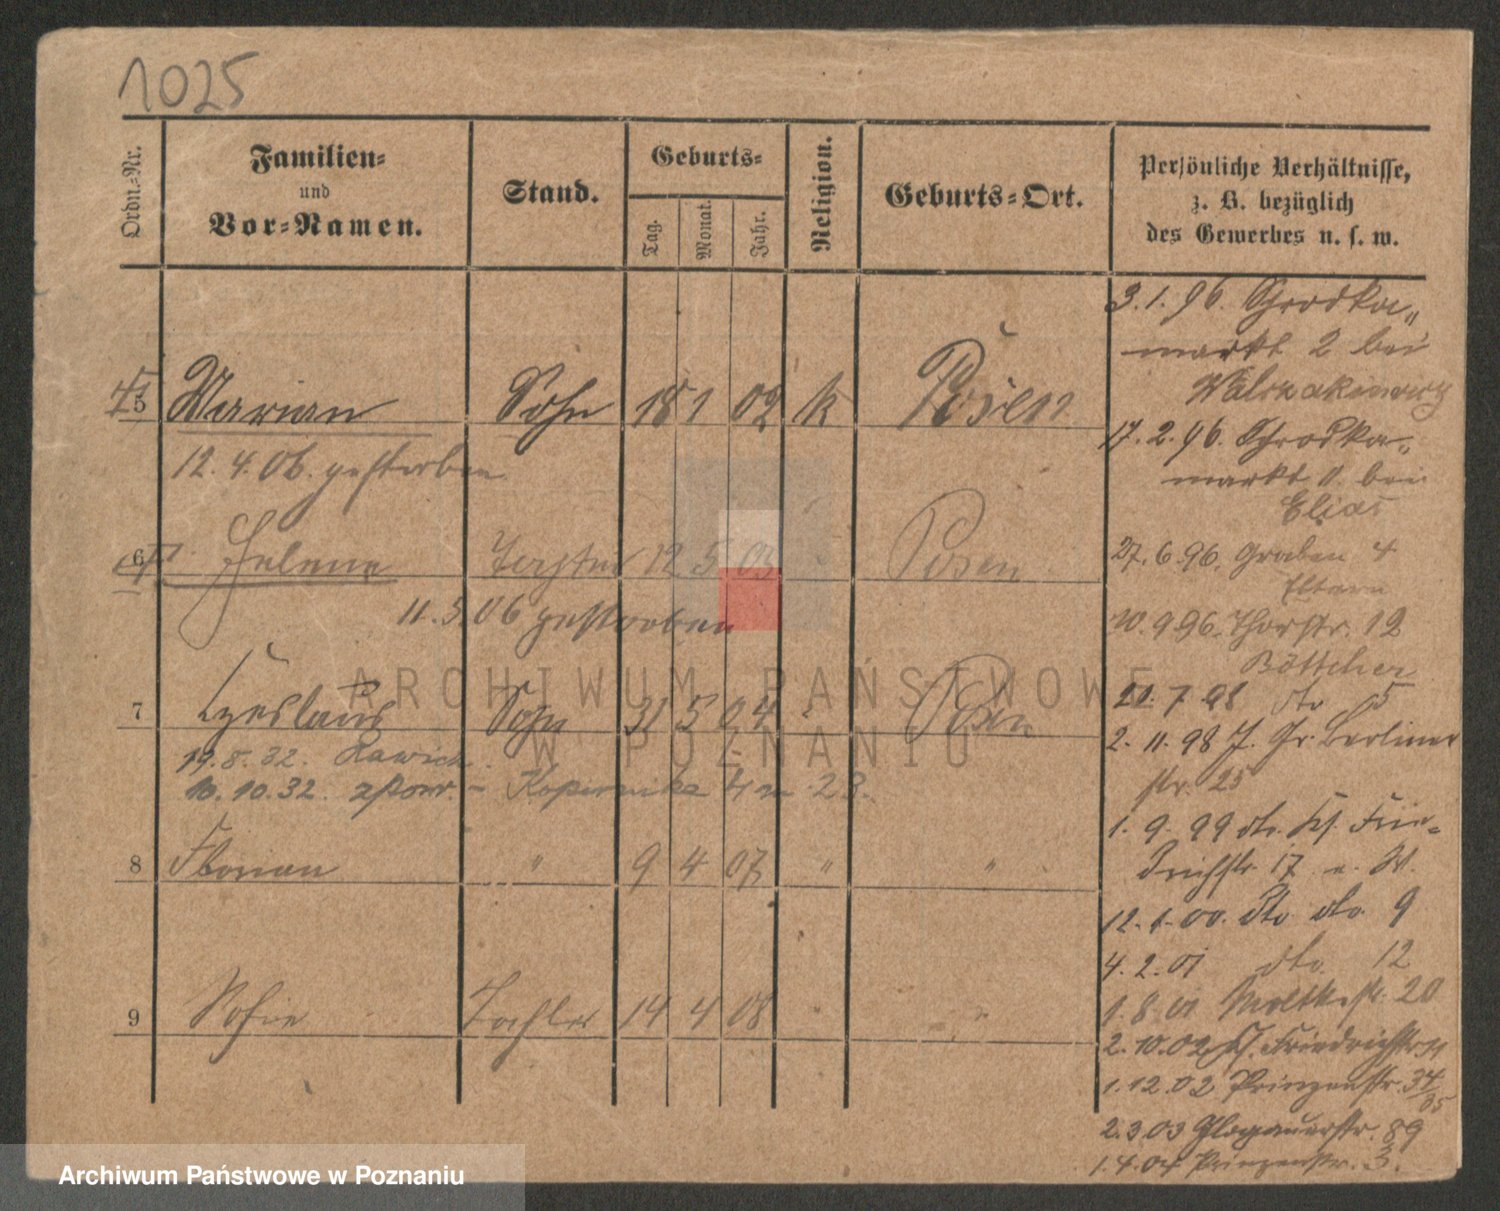 1025
Ordn.-Nr.
Familien-
und
Vor-Namen.
Stand.
Geburts-
Tag.
Monat.
Jahr.
Religion.
Geburts-Ort.
Persönliche Verhältnisse,
z. B. bezüglich
des Gewerbes u. s. w.
5 Marian Sohn 18 1 02 k Posen
12. 4. 06. gestorben
6 Helene Tochter 12 5 03 Posen
11. 5. 06 gestorben
7 Czeslaus Sohn 31 5 04 Posen
19. 8. 32. Rawicz.
10. 10. 32. zpowr. - Kopernika 4 m 23.
8 Florian " 9 4 07 " "
9 Sofie Tochter 14 4 08 "
3. 1. 96. Schrodka-
markt 2 bei
17. 2. 96. Schrodka-
markt bei
Elias
27. 6. 96. Graben 4
Eltern
10. 9 96. Thorstr. 12
Böttcher
20. 7 98 dto 5
2. 11. 98 J. Gr. Berliner
str. 25
1. 9. 99 dto. Frie-
drichstr. 17
12. 1. 00. dto dto. 9
4. 2. 01 dto. 12
1. 8. 01 Moltkestr. 20
2. 10. 02 Friedrichstr
1. 12. 02 Prinzenstr. 34/35
2. 3 03 Glogauerstr. 89
1. 4. 04 Prinzenstr. 3.
ARCHIWUM PAŃSTWOWE
W POZNANIU
Archiwum Państwowe w Poznaniu